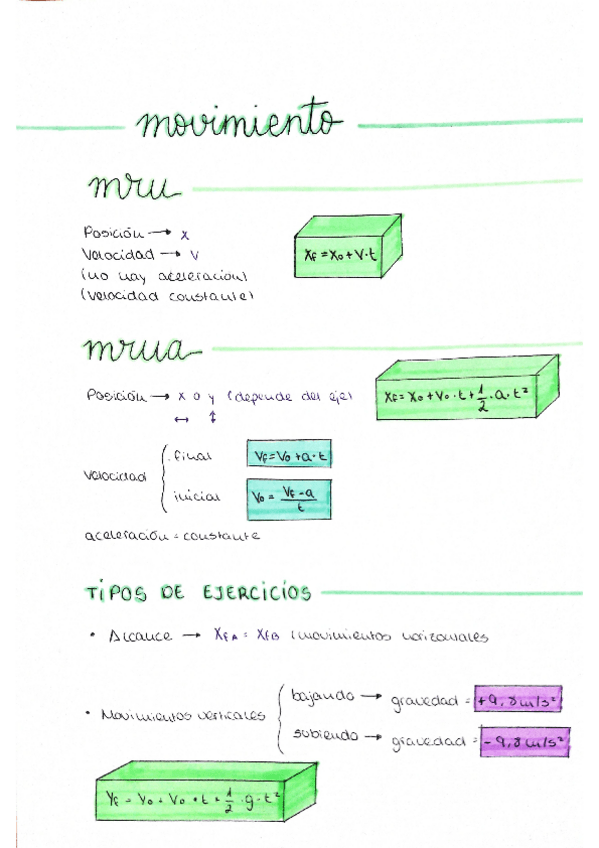 movimiento
mru
Posición → x
Velocidad → v
(no hay aceleración)
(velocidad constante)
XF = X0 + V·t
mrua
Posición → x o y (depende del eje)
↔ ↕
XF = X0 + V0·t + 1/2·a·t²
velocidad
final VF = V0 + a·t
inicial V0 = VF - a / t
aceleración = constante
TIPOS DE EJERCICIOS
• Alcance → XFA = XFB (movimientos horizontales
• Movimientos verticales
bajando → gravedad = +9,8 m/s²
subiendo → gravedad = -9,8 m/s²
YF = Y0 + V0·t + 1/2·g·t²